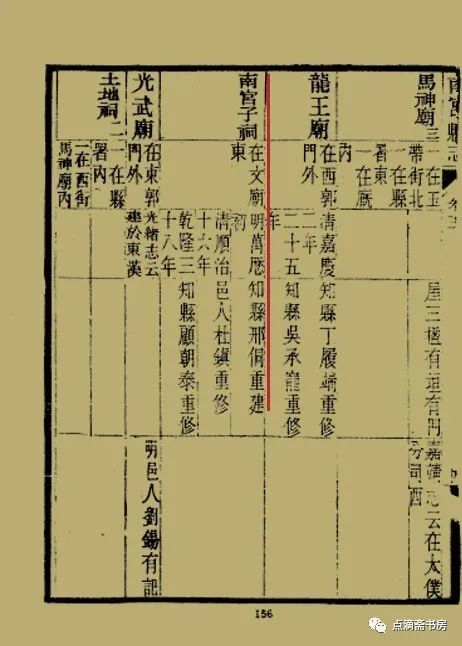 南宮縣志
馬神廟三
一在玉
帶街北
一在縣
署東
一在廐
內
屋三楹有垣有門
嘉靖志云在太僕
分司西
龍王廟
在西郭
門外
清嘉慶
二年
知縣丁履端重修
二十五
年
知縣吳承寵重修
南宮子祠
在文廟
東
明萬歷
初
知縣邢侗重建
清順治
十六年
邑人杜鎮重修
乾隆三
十八年
知縣顧朝泰重修
光武廟
在東郭
門外
光緒志云
建於東漢
明邑人劉錫有記
土地祠二
一在縣
署內
一在西街
馬神廟內
156
点滴斋书房